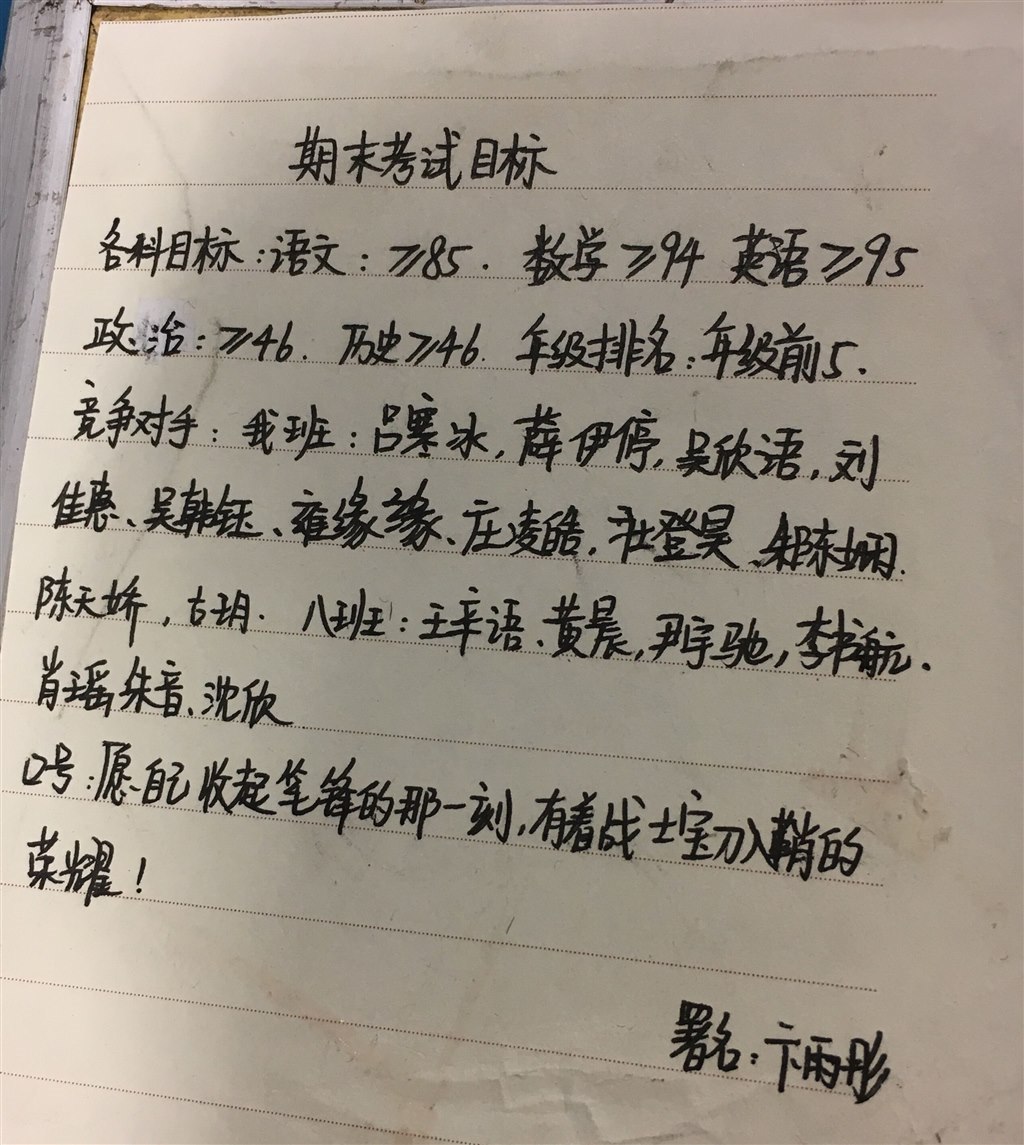 期末考试目标
各科目标:语文:≥85. 数学≥94 英语≥95
政治:≥46. 历史≥46. 年级排名:年级前5.
竞争对手:我班:吕寒冰,薛伊停,吴欣语,刘
佳惠、吴韩钰、雍缘缘、庄凌皓,杜登昊、郏东娴.
陈天娇,古玥. 八班:王辛语、黄晨,尹宇驰,李书航.
肖瑶,朱音、沈欣
口号:愿自己收起笔锋的那一刻,有着战士宝刀入鞘的
荣耀!
署名:卞雨彤